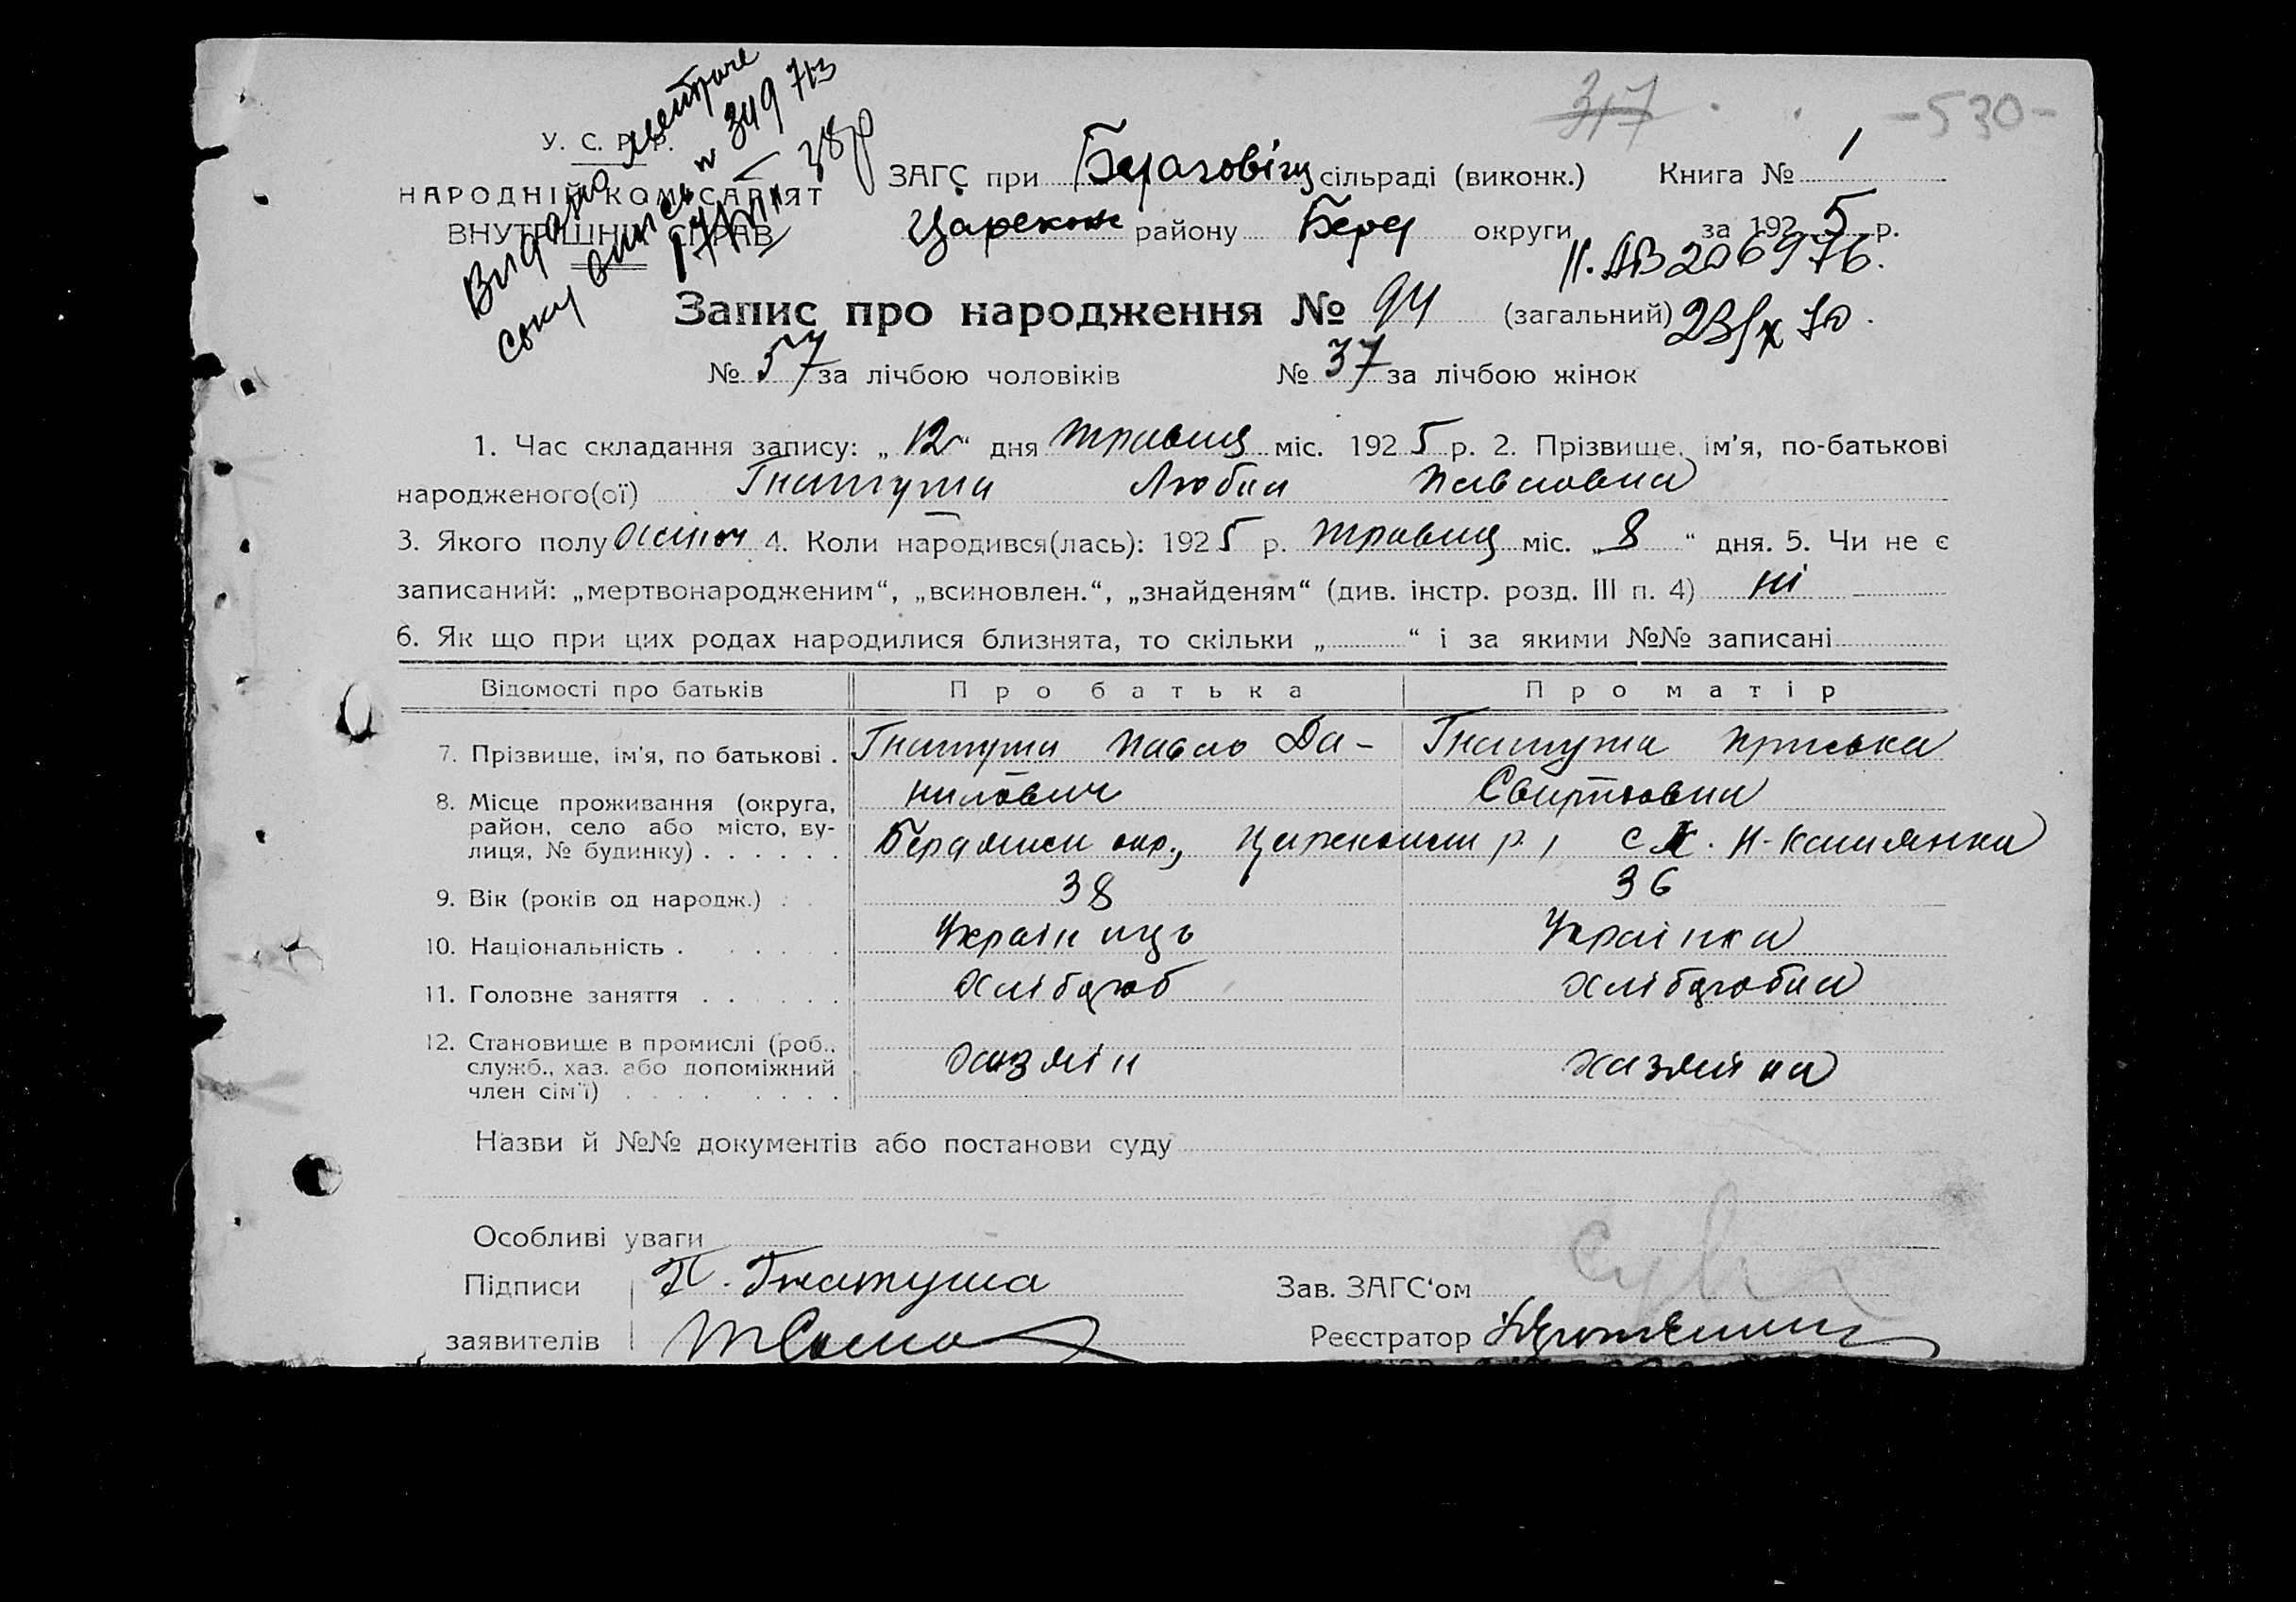 317 -530-
У. С. Р. Р.
НАРОДНІЙ КОМІСАРІЯТ
ВНУТРІШНІХ СПРАВ
Видано метричне
349713
38р
ЗАГС при сільраді (виконк.) Книга № 1
району округи за 1925 р.
Н. АВ 206976.
Запис про народження № 94 (загальний) 23/X 70.
№ 57 за лічбою чоловіків № 37 за лічбою жінок
1. Час складання запису: „12“ дня травня міс. 1925 р. 2. Прізвище, ім'я, по-батькові
народженого(ої) Гнатуша Любка Павловна
3. Якого полу жіноч 4. Коли народився(лась): 1925 р. травня міс. „8“ дня. 5. Чи не є
записаний: „мертвонародженим“, „всиновлен.“, „знайденям“ (див. інстр. розд. III п. 4) ні
6. Як що при цих родах народилися близнята, то скільки „ “ і за якими №№ записані
Відомості про батьків Про батька Про матір
7. Прізвище, ім'я, по батькові . Гнатуша Павло Да- Гнатуша Приська
нилович
8. Місце проживання (округа,
район, село або місто, ву-
лиця, № будинку) . . . . . . окр., р., Н-Кам'янка
9. Вік (років од народж.) . . 38 36
10. Національність . . . . . . Українець Українка
11. Головне заняття . . . . . . хлібороб хліборобка
12. Становище в промислі (роб.,
служб., хаз. або допоміжний
член сім'ї) . . . . . . . . . хазяін хазяйка
Назви й №№ документів або постанови суду
Особливі уваги
Підписи П. Гнатуша Зав. ЗАГС'ом
заявителів Реєстратор